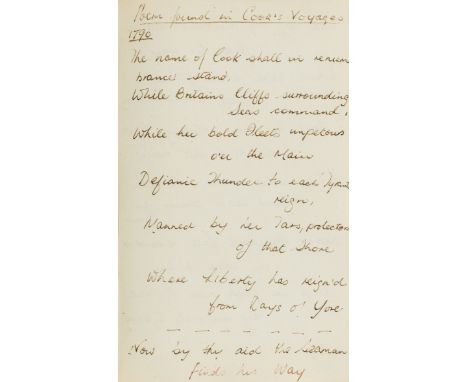 Poem found in Cook's Voyages
1790
The name of Cook shall in remem
brance stand,
While Britains Cliffs surrounding
Seas command,
While her bold Fleets impetous
o'er the Main
Defiance Thunder to each Tyrant
reign,
Manned by her Tars, protectors
of that Shore
Where Liberty has reign'd
from Days o' Yore
Now by thy aid the Seaman
finds his Way